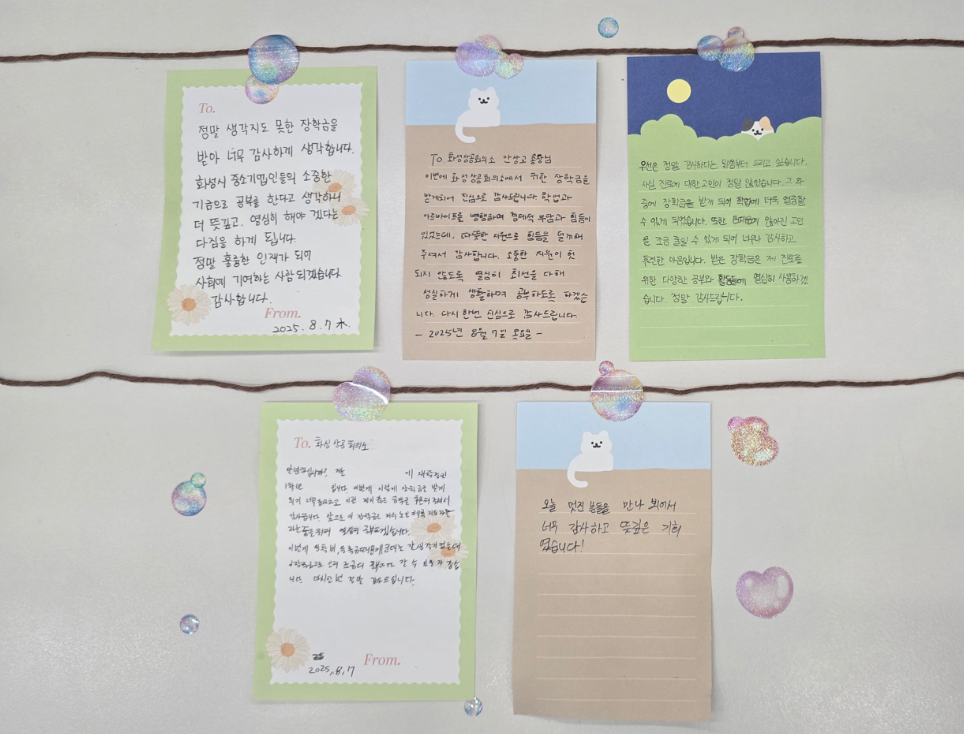 To.
정말 생각지도 못한 장학금을
받아 너무 감사하게 생각합니다.
화성시 중소기업인들의 소중한
기금으로 공부를 한다고 생각하니
더 뜻깊고. 열심히 해야 겠다는
다짐을 하게 됩니다.
정말 훌륭한 인재가 되어
사회에 기여하는 사람 되겠습니다
감사합니다.
From.
2025. 8. 7 木.
To. 화성상공회의소 안상교 회장님
이번에 화성상공회의소에서 귀한 장학금을
받게되어 진심으로 감사드립니다 학업과
아르바이트를 병행하며 경제적 부담과 힘듦이
있었는데, 따뜻한 지원으로 힘듦을 덜게해
주셔서 감사합니다. 소중한 지원이 헛
되지 않도록 열심히 최선을 다해
성실하게 생활하며 공부하도록 하겠습
니다. 다시 한번 진심으로 감사드립니다.
- 2025년 8월 7일 목요일 -
우선은 정말 감사하다는 말씀부터 드리고 싶습니다.
사실 진로에 대한 고민이 정말 많았습니다. 그 와
중에 장학금을 받게 되어 학업에 더욱 열중할
수 있게 되었습니다. 또한 많아진 고민
을 조금 덜 수 있게 되어 너무나 감사하고,
후련한 마음입니다. 받은 장학금은 제 진로를
위한 다양한 공부와 활동들에 열심히 사용하겠
습니다. 정말 감사드립니다.
To. 화성상공회의소
안녕하십니까? 저는 에 재학중인
1학년 입니다 이번에 이렇게 장학금을 받게
되어
감사합니다. 앞으로 이 장학금은 저의
열심히 공부하겠습니다.
이번에
니다. 다시 한번 정말 감사드립니다.
From.
2025. 8. 7
오늘 멋진 분들을 만나 뵈어서
너무 감사하고 뜻깊은 기회
였습니다!